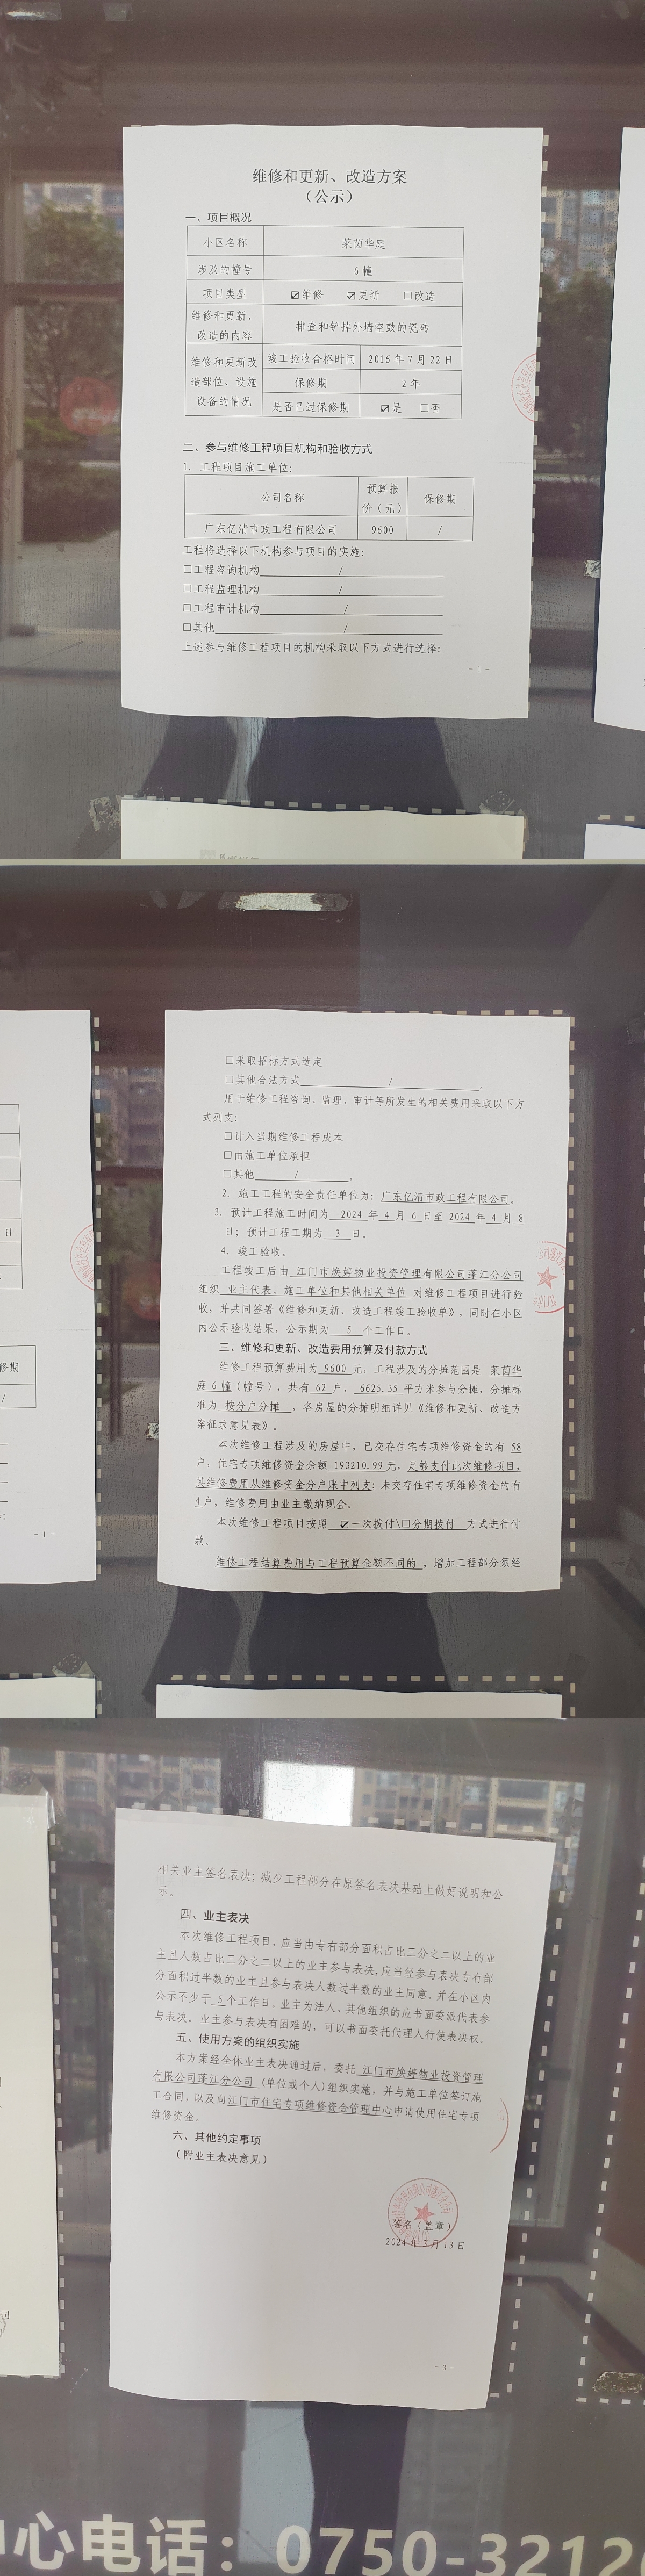 维修和更新、改造方案
（公示）
一、项目概况
小区名称 莱茵华庭
涉及的幢号 6 幢
项目类型 ☑维修 ☑更新 □改造
维修和更新、
改造的内容 排查和铲掉外墙空鼓的瓷砖
维修和更新改
造部位、设施
设备的情况
竣工验收合格时间 2016 年 7 月 22 日
保修期 2 年
是否已过保修期 ☑是 □否
二、参与维修工程项目机构和验收方式
1. 工程项目施工单位：
公司名称 预算报
价（元） 保修期
广东亿清市政工程有限公司 9600 /
工程将选择以下机构参与项目的实施：
□工程咨询机构 /
□工程监理机构 /
□工程审计机构 /
□其他 /
上述参与维修工程项目的机构采取以下方式进行选择：
- 1 -
□采取招标方式选定
□其他合法方式 / 。
用于维修工程咨询、监理、审计等所发生的相关费用采取以下方
式列支：
□计入当期维修工程成本
□由施工单位承担
□其他 / 。
2. 施工工程的安全责任单位为：广东亿清市政工程有限公司。
3. 预计工程施工时间为 2024 年 4 月 6 日至 2024 年 4 月 8
日；预计工程工期为 3 日。
4. 竣工验收。
工程竣工后由 江门市焕婷物业投资管理有限公司蓬江分公司
组织 业主代表、施工单位和其他相关单位 对维修工程项目进行验
收，并共同签署《维修和更新、改造工程竣工验收单》，同时在小区
内公示验收结果，公示期为 5 个工作日。
三、维修和更新、改造费用预算及付款方式
维修工程预算费用为 9600 元，工程涉及的分摊范围是 莱茵华
庭 6 幢（幢号），共有 62 户， 6625.35 平方米参与分摊，分摊标
准为 按分户分摊 ，各房屋的分摊明细详见《维修和更新、改造方
案征求意见表》。
本次维修工程涉及的房屋中，已交存住宅专项维修资金的有 58
户，住宅专项维修资金余额 193210.99 元，足够支付此次维修项目，
其维修费用从维修资金分户账中列支；未交存住宅专项维修资金的有
4 户，维修费用由业主缴纳现金。
本次维修工程项目按照 ☑一次拨付\□分期拨付 方式进行付
款。
维修工程结算费用与工程预算金额不同的 ，增加工程部分须经
日
修期
/
- 1 -
相关业主签名表决；减少工程部分在原签名表决基础上做好说明和公
示。
四、业主表决
本次维修工程项目，应当由专有部分面积占比三分之二以上的业
主且人数占比三分之二以上的业主参与表决，应当经参与表决专有部
分面积过半数的业主且参与表决人数过半数的业主同意、并在小区内
公示不少于 5 个工作日。业主为法人、其他组织的应书面委派代表参
与表决。业主参与表决有困难的，可以书面委托代理人行使表决权。
五、使用方案的组织实施
本方案经全体业主表决通过后，委托 江门市焕婷物业投资管理
有限公司蓬江分公司 (单位或个人)组织实施，并与施工单位签订施
工合同，以及向江门市住宅专项维修资金管理中心申请使用住宅专项
维修资金。
六、其他约定事项
（附业主表决意见）
签名（盖章）
2024 年 3 月 13 日
- 3 -
心电话：0750-3212